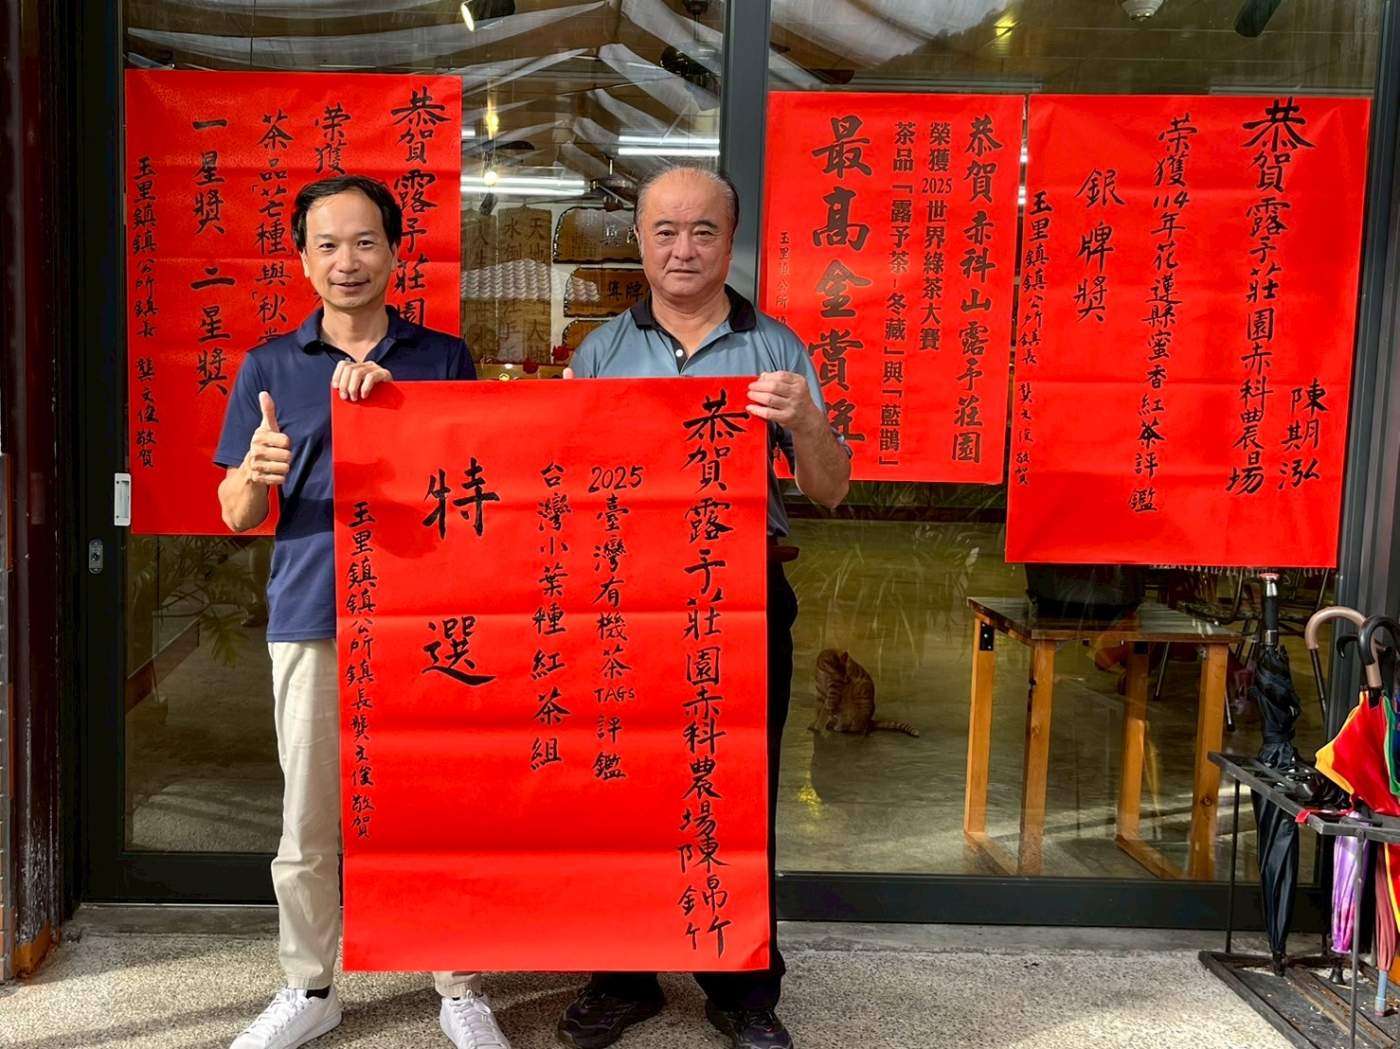 恭賀露予莊園赤科農場陳錦竹
2025臺灣有機茶TAGs評鑑
台灣小葉種紅茶組
特選
玉里鎮鎮公所鎮長龔文俊敬賀
恭賀露予莊園赤科農場
陳期泓
榮獲114年花蓮縣蜜香紅茶評鑑
銀牌獎
玉里鎮鎮公所鎮長 龔文俊敬賀
恭賀赤科山露予莊園
榮獲2025世界綠茶大賽
茶品「露予茶-冬藏」與「藍鵲」
最高金賞獎
玉里鎮公所
恭賀露予莊園
榮獲
茶品「芒種與「秋
一星獎 二星獎
玉里鎮鎮公所鎮長 龔文俊敬賀